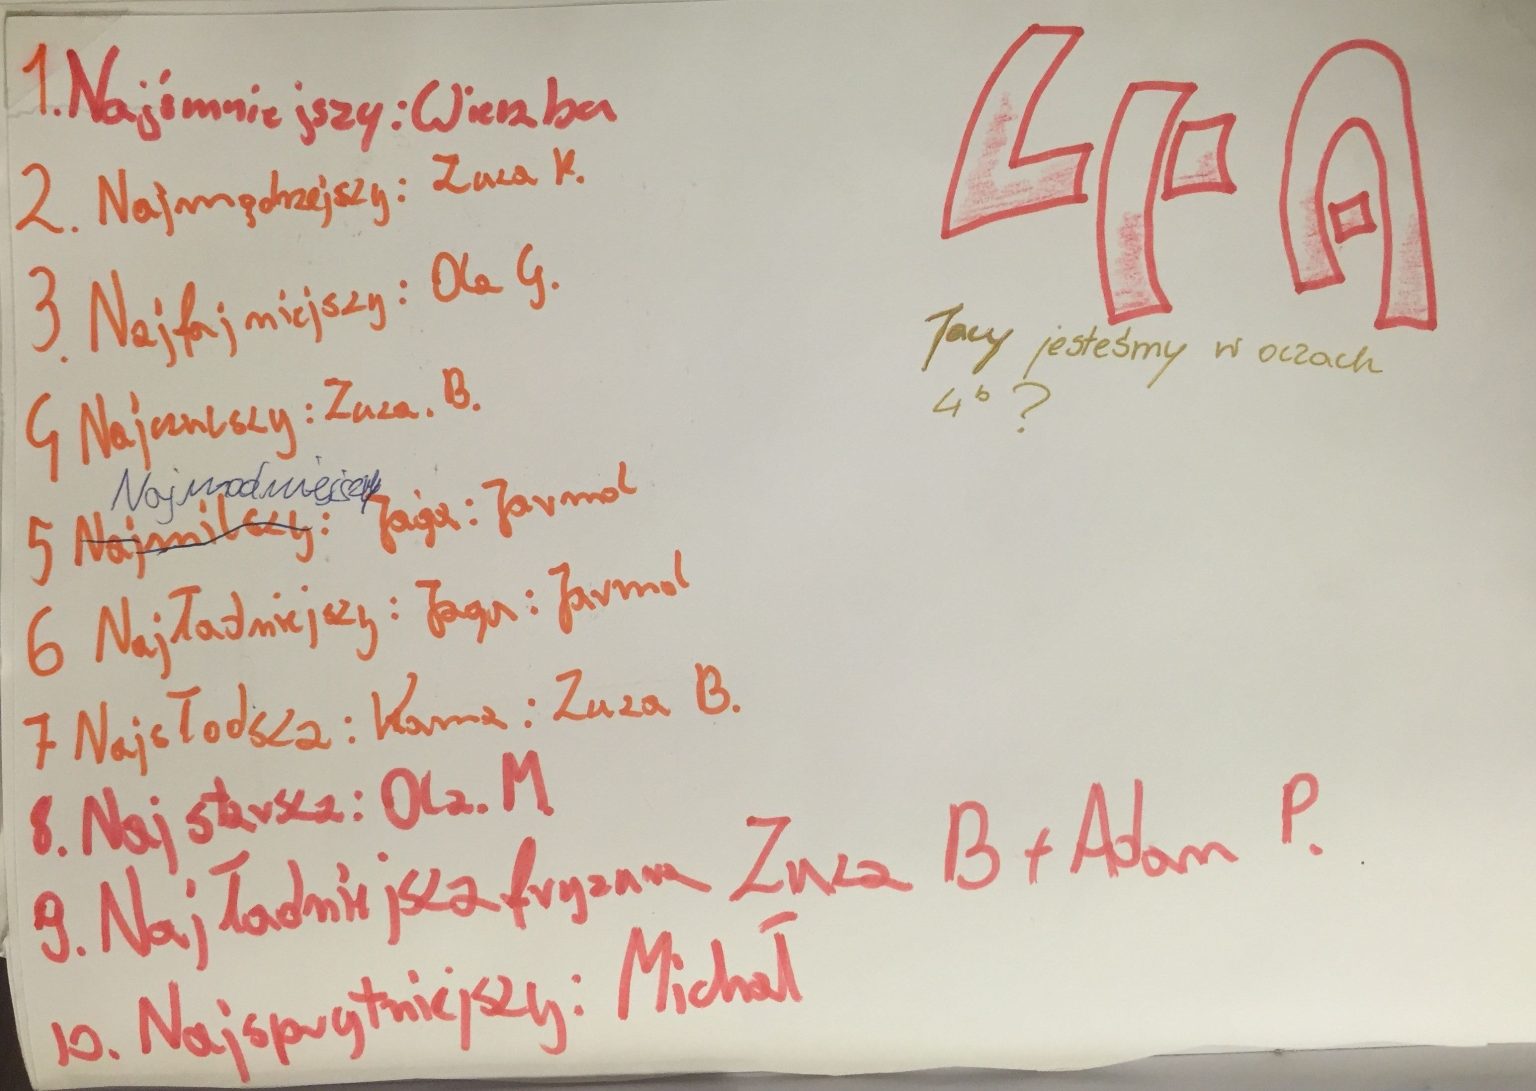 1. Najśmniejszy: Wierzba
2. Najmądrzejszy: Zuza K.
3. Najfajniejszy: Ola G.
4 Najczulszy: Zuza. B.
Najmodniejszy
5 Najmilszy: Jaga: Jarmol
6 Najładniejszy: Jaga: Jarmol
7 Najsłodsza: Kama: Zuza B.
8. Najstarsza: Ola. M
9. Najładniejsza fryzura Zuza B + Adam P.
10. Najsprytniejszy: Michał
4 A
Jacy jesteśmy w oczach
4 b ?